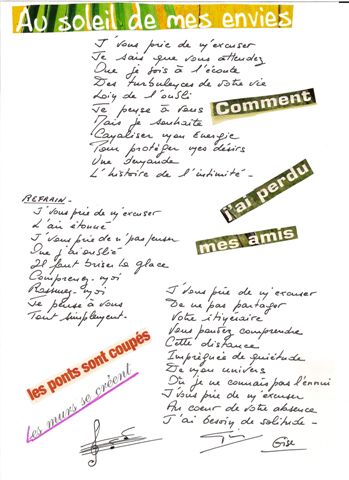 Au soleil de mes envies
J'vous prie de m'excuser
Je sais que vous attendez
Que je sois à l'écoute
Des turbulences de votre vie
Loin de l'oubli
Je pense à vous
Mais je souhaite
Canaliser mon énergie
Pour protéger mes désirs
Une demande
L'histoire de l'intimité -
Comment
j'ai perdu
mes amis
REFRAIN -
J'vous prie de m'excuser
L'air étonné
J'vous prie de n'pas penser
Que j'ai oublié
Il faut briser la glace
Comprenez-moi
Rassurez-moi
Je pense à vous
Tout simplement -
les ponts sont coupés
Les murs se créent
J'vous prie de m'excuser
De ne pas partager
Votre itinéraire
Vous pouvez comprendre
Cette distance
Imprégnée de quiétude
De mon univers
Où je ne connais pas l'ennui
J'vous prie de m'excuser
Au coeur de votre absence
J'ai besoin de solitude -
Gise